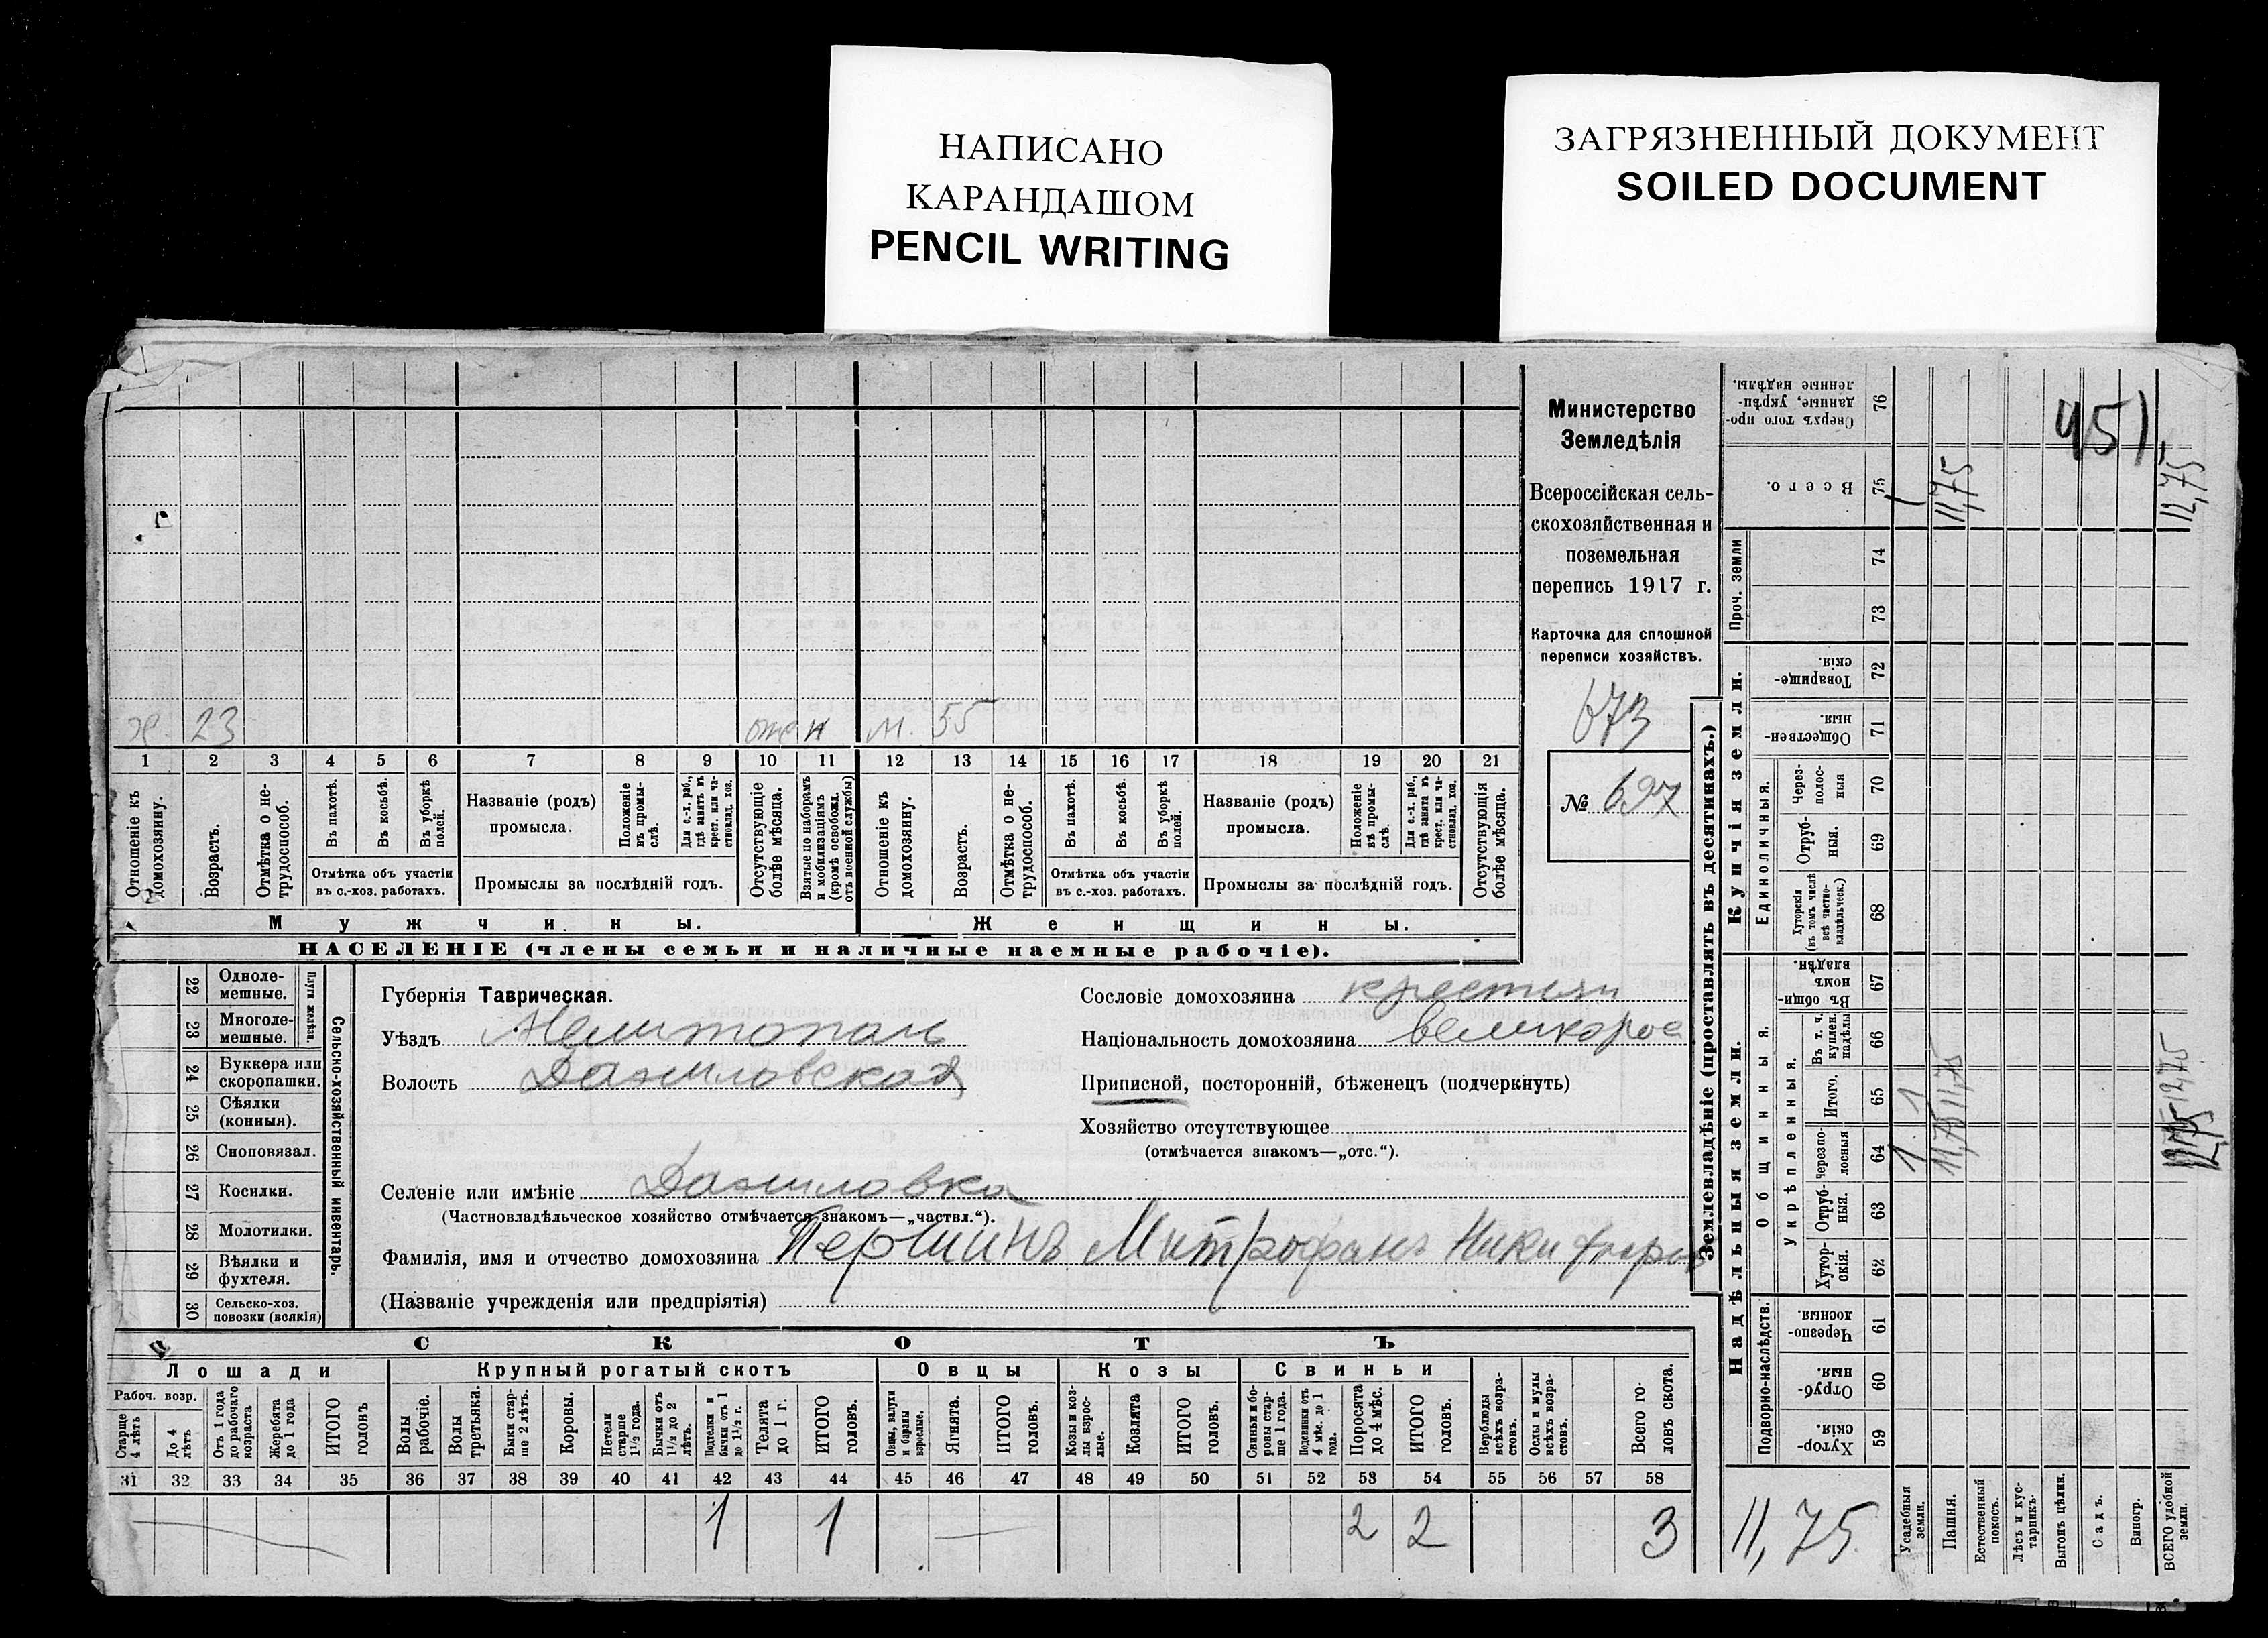 НАПИСАНО
КАРАНДАШОМ
PENCIL WRITING
ЗАГРЯЗНЕННЫЙ ДОКУМЕНТ
SOILED DOCUMENT
Министерство
Земледѣлія
Всероссійская сель-
скохозяйственная и
поземельная
перепись 1917 г.
Карточка для сплошной
переписи хозяйствъ.
673
№ 697
23
м. 55
1 2 3 4 5 6 7 8 9 10 11 12 13 14 15 16 17 18 19 20 21
Отношеніе къ домохозяину.
Возрастъ.
Отмѣтка о не-трудоспособ.
Въ пахотѣ.
Въ косьбѣ.
Въ уборкѣ полей.
Отмѣтка объ участіи
въ с.-хоз. работахъ.
Названіе (родъ)
промысла.
Положеніе въ промы-слѣ.
Для с.-х. раб., гдѣ занятъ въ крест. или ча-стновлад. хоз.
Промыслы за послѣдній годъ.
Отсутствующіе болѣе мѣсяца.
Взятые по наборамъ и мобилизаціямъ (кромѣ освобожд. отъ военной службы)
Отношеніе къ домохозяину.
Возрастъ.
Отмѣтка о не-трудоспособ.
Въ пахотѣ.
Въ косьбѣ.
Въ уборкѣ полей.
Отмѣтка объ участіи
въ с.-хоз. работахъ.
Названіе (родъ)
промысла.
Положеніе въ промы-слѣ.
Для с.-х. раб., гдѣ занята въ крест. или ча-стновлад. хоз.
Промыслы за послѣдній годъ.
Отсутствующія болѣе мѣсяца.
Мужчины.
Женщины.
НАСЕЛЕНІЕ (члены семьи и наличные наемные рабочіе).
22 Одноле-мешные.
23 Многоле-мешные.
Плуги желѣзн.
24 Буккера или скоропашки.
25 Сѣялки (конныя).
26 Сноповязал.
27 Косилки.
28 Молотилки.
29 Вѣялки и фухтеля.
30 Сельско-хоз. повозки (всякія)
Сельско-хозяйственный инвентарь.
Губернія Таврическая.
Уѣздъ Мелитопол
Волость Даниловская
Селеніе или имѣніе Даниловка
(Частновладѣльческое хозяйство отмѣчается знакомъ—„частвл.“).
Фамилія, имя и отчество домохозяина Першинъ Митрофанъ Никифоров
(Названіе учрежденія или предпріятія)
Сословіе домохозяина крестьян
Національность домохозяина великорос
Приписной, посторонній, бѣженецъ (подчеркнуть)
Хозяйство отсутствующее
(отмѣчается знакомъ—„отс.“).
СКОТЪ
Лошади
Крупный рогатый скотъ
Овцы
Козы
Свиньи
Рабоч. возр.
Старше 4 лѣтъ
До 4 лѣтъ
Отъ 1 года до рабочаго возраста
Жеребята до 1 года
ИТОГО головъ
Волы рабочіе.
Волы третьяки.
Быки стар-ше 2 лѣтъ.
Коровы.
Нетели старше 1½ года.
Бычки отъ 1½ до 2 лѣтъ.
Подтелки и бычки отъ 1 до 1½ г.
Телята до 1 г.
ИТОГО головъ.
Овцы, валухи и бараны взрослые.
Ягнята.
ИТОГО головъ.
Козы и коз-лы взрос-лые.
Козлята
ИТОГО головъ.
Свиньи и бо-ровы стар-ше 1 года.
Подсвинки отъ 4 мѣс. до 1 года.
Поросята до 4 мѣс.
ИТОГО головъ.
Верблюды всѣхъ возра-стовъ.
Ослы и мулы всѣхъ возра-стовъ.
Всего го-ловъ скота.
31 32 33 34 35 36 37 38 39 40 41 42 43 44 45 46 47 48 49 50 51 52 53 54 55 56 57 58
1 1 2 2 3
Землевладѣніе (проставлять въ десятинахъ.)
Купчія земли.
Надѣльныя земли.
Проч. земли
Единоличныя.
Общинныя.
Укрѣпленныя.
Подворно-наслѣдств.
Сверхъ того про-данные, укрѣп-ленные надѣлы. 76
Всего. 75
74
73
Товарище-скія. 72
Обществен-ныя. 71
Через-полос-ныя 70
Отруб-ныя. 69
Хуторскія (въ томъ числѣ всѣ частно-владѣльческ.) 68
Въ общи-номъ владѣн. 67
Въ т. ч. куплен. надѣлы 66
Итого. 65
Черезпо-лосныя 64
Отруб-ныя. 63
Хутор-скія. 62
Черезпо-лосныя 61
Отруб-ныя. 60
Хутор-скія. 59
Усадебныя земли.
Пашня.
Естественный покосъ.
Лѣсъ и кус-тарникъ.
Выгонъ цѣлин.
Садъ.
Виногр.
ВСЕГО удобной земли.
451
1 11,75 12,75
1 11,75 12,75
1 11,75 12,75
11,75